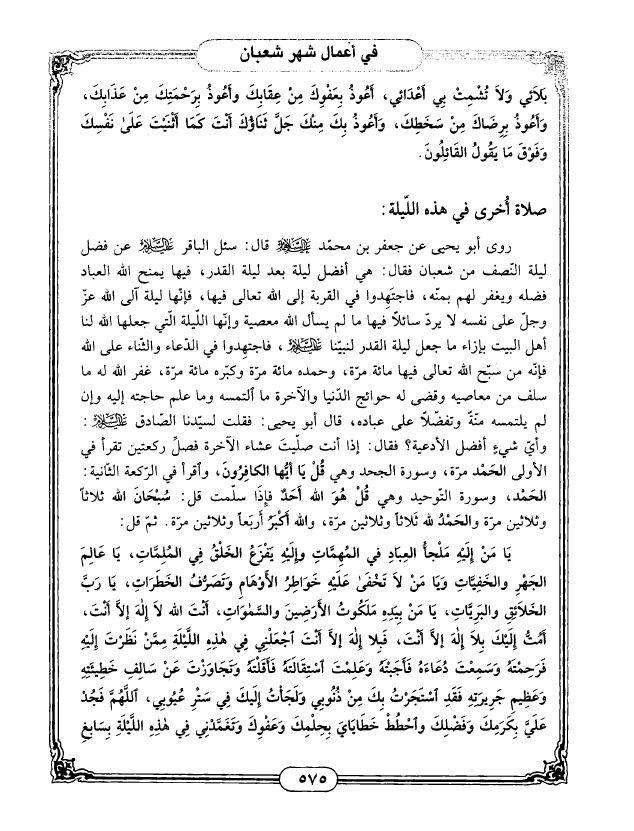 في أعمال شهر شعبان
بَلاَئي وَلاَ تُشْمِتْ بِي أَعْدَائي، أَعُوذُ بِعَفْوِكَ مِنْ عِقَابِكَ وأَعُوذُ بِرَحْمَتِكَ مِنْ عَذَابِكَ،
وَأَعُوذُ بِرِضَاكَ مِنْ سَخَطِكَ، وَأَعُوذُ بِكَ مِنْكَ جَلَّ ثَنَاؤُكَ أَنْتَ كَمَا أَثْنَيْتَ عَلَىٰ نَفْسِكَ
وَفَوْقَ مَا يَقُولُ القَائِلُونَ.
صلاة أُخرى في هذه اللّيلة:
روى أبو يحيى عن جعفر بن محمّد عليه السلام قال: سئل الباقر عليه السلام عن فضل
ليلة النّصف من شعبان فقال: هي أفضل ليلة بعد ليلة القدر، فيها يمنح الله العباد
فضله ويغفر لهم بمنّه، فاجتهدوا في القربة إلى الله تعالى فيها، فإنّها ليلة آلى الله عزّ
وجلّ على نفسه لا يردّ سائلاً فيها ما لم يسأل الله معصية وإنّها اللّيلة الّتي جعلها الله لنا
أهل البيت بإزاء ما جعل ليلة القدر لنبيّنا عليه السلام، فاجتهدوا في الدّعاء والثّناء على الله
فإنّه من سبّح الله تعالى فيها مائة مرّة، وحمده مائة مرّة وكبّره مائة مرّة، غفر الله له ما
سلف من معاصيه وقضى له حوائج الدّنيا والآخرة ما ٱلتمسه وما علم حاجته إليه وإن
لم يلتمسه منّةً وتفضّلاً على عباده، قال أبو يحيى: فقلت لسيّدنا الصّادق عليه السلام:
وأيّ شيءٍ أفضل الأدعية؟ فقال: إذا أنت صلّيتَ عشاء الآخرة فصلِّ ركعتين تقرأ في
الأولى الحَمْد مرّة، وسورة الجحد وهي قُلْ يَا أيُّها الكافِرُونَ، وٱقرأ في الرّكعة الثّانية:
الحَمْد، وسورة التّوحيد وهي قُلْ هُوَ الله أَحَدٌ فإذَا سلّمت قل: سُبْحَانَ الله ثلاثاً
وثلاثين مرّة والحَمْدُ لله ثَلاثاً وثلاثين مرّة، والله أَكْبَرُ أربَعاً وثلاثين مرّة. ثمّ قل:
يَا مَنْ إلَيْهِ مَلْجأُ العِبَادِ في المُهِمَّاتِ وإِلَيْهِ يَفْزَعُ الخَلْقُ فِي المُلِمَّاتِ، يَا عَالِمَ
الجَهْرِ والخَفِيَّاتِ وَيَا مَنْ لاَ تَخْفَىٰ عَلَيْهِ خَوَاطِرُ الأَوْهَامِ وَتَصَرُّفُ الخَطَرَاتِ، يَا رَبَّ
الخَلائِقِ والبَرِيَّاتِ، يَا مَنْ بِيَدِهِ مَلَكُوتُ الأَرَضِينَ والسَّمٰوَاتِ، أَنْتَ الله لاَ إِلٰهَ إلاَّ أَنْتَ،
أَمُتُّ إِلَيْكَ بِلاَ إِلٰهَ إلاَّ أَنْتَ، فَبِلا إِلٰهَ إلاَّ أَنْتَ ٱجْعَلْنِي فِي هٰذِهِ اللَّيْلَةِ مِمَّنْ نَظَرْتَ إِلَيْهِ
فَرَحِمْتَهُ وَسَمِعْتَ دُعَاءَهُ فَأَجَبْتَهُ وَعَلِمْتَ ٱسْتِقَالَتَهُ فَأَقَلْتَهُ وَتَجَاوَزْتَ عَنْ سَالِفِ خَطِيئَتِهِ
وَعَظِيمِ جَرِيرَتِهِ فَقَدِ ٱسْتَجَرْتُ بِكَ مِنْ ذُنُوبِي وَلَجَأْتُ إِلَيكَ فِي سَتْرِ عُيُوبِي، ٱللَّهُمَّ فَجُدْ
عَلَيَّ بِكَرَمِكَ وَفَضْلِكَ وٱحْطُطْ خَطَايَايَ بِحِلْمِكَ وَعَفْوِكَ وَتَغَمَّدْنِي فِي هٰذِهِ اللَّيْلَةِ بِسَابِغِ
٥٧٥